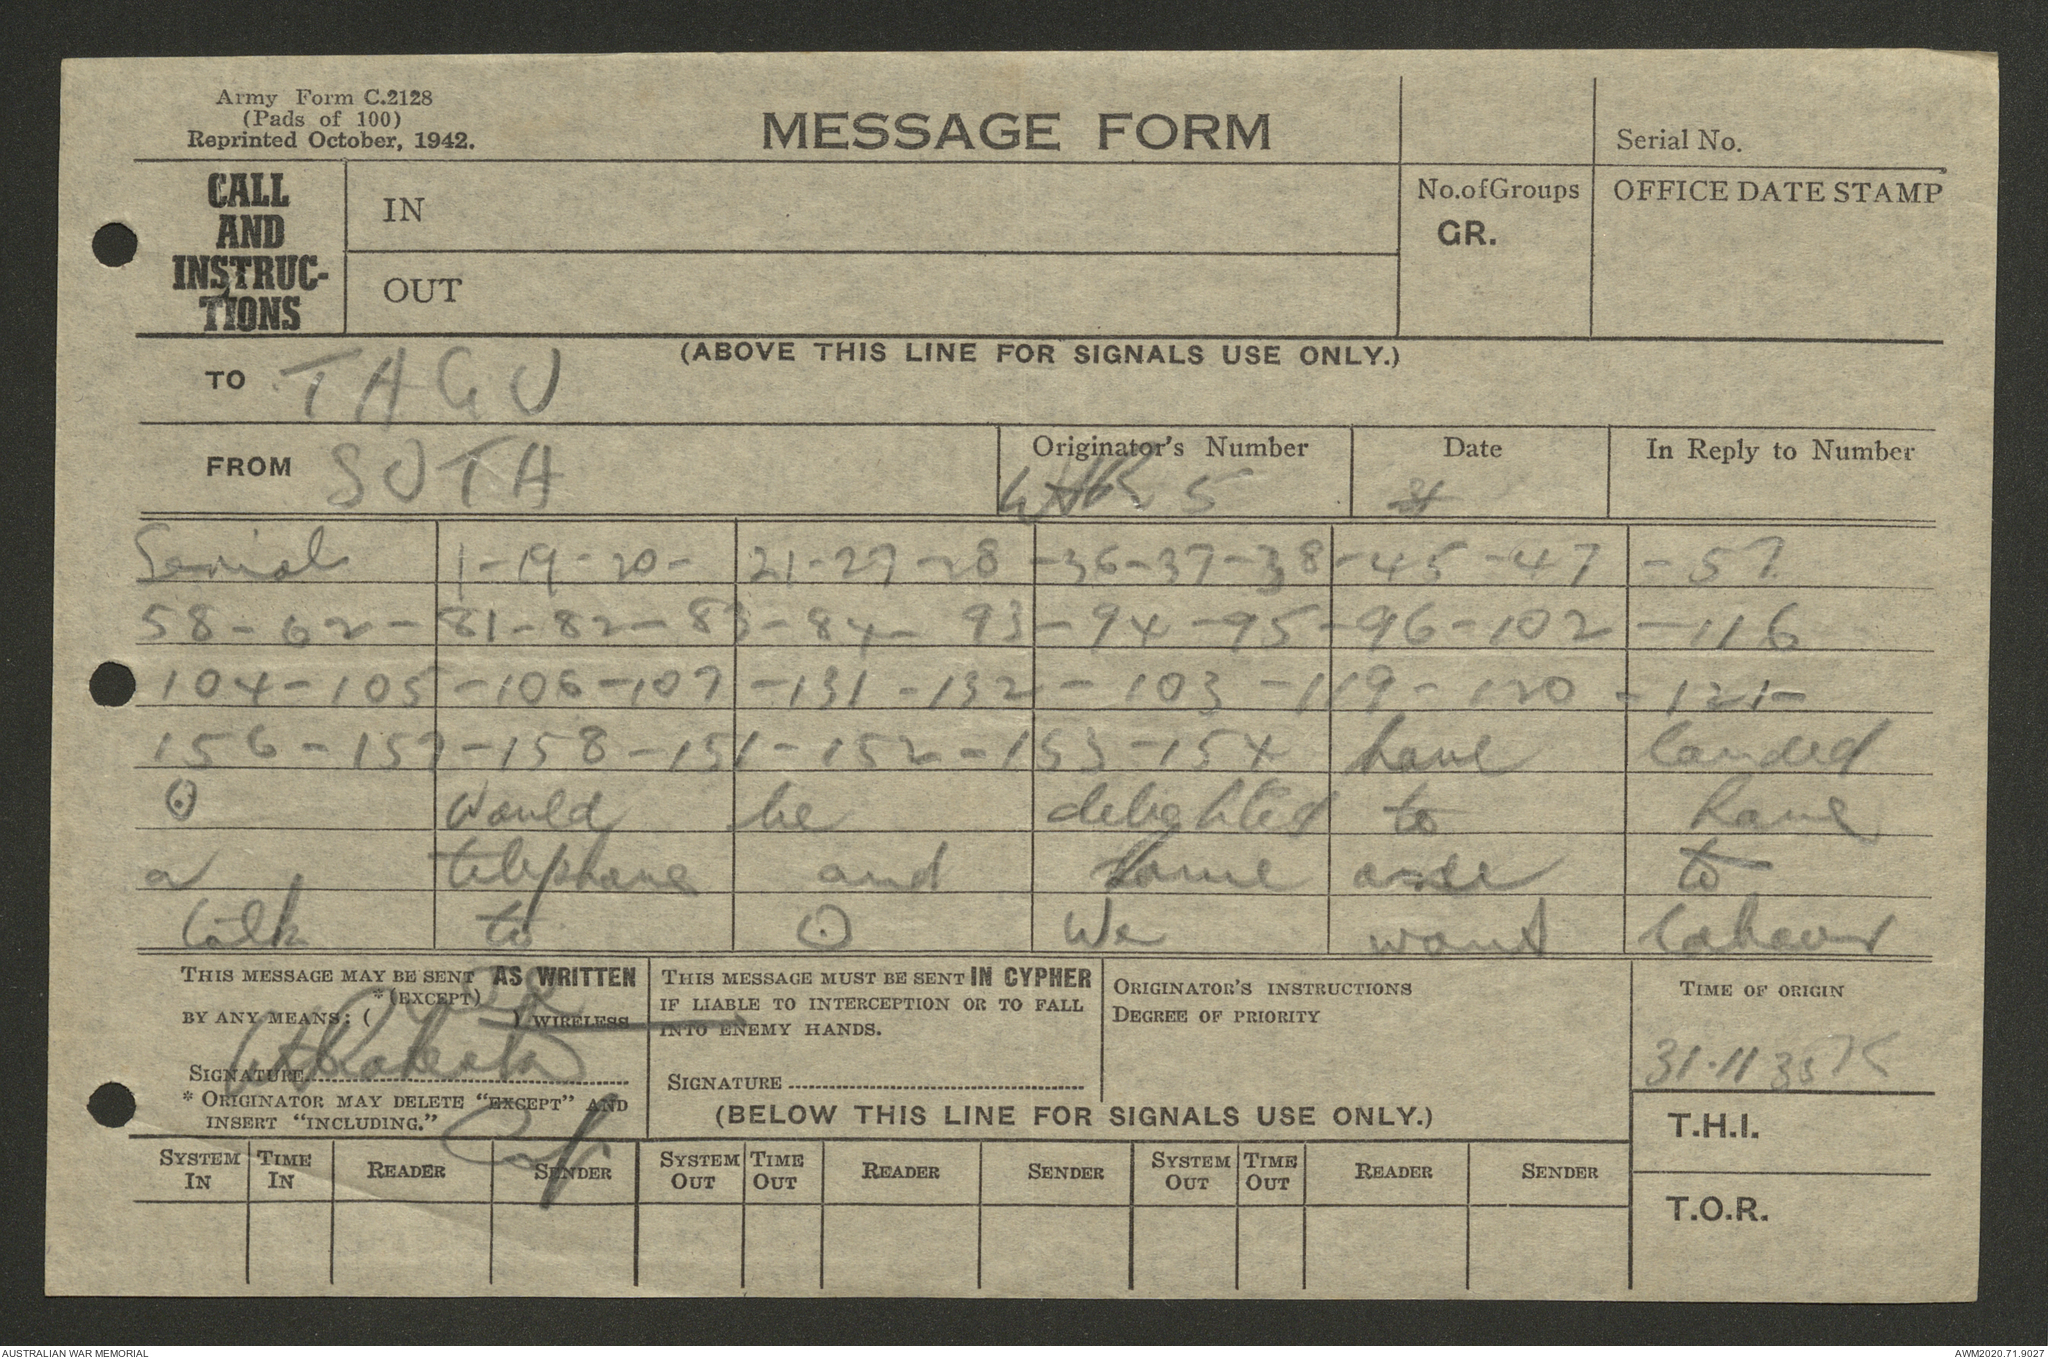 Army Form C.2128
(Pads of 100)
Reprinted October, 1942.
MESSAGE FORM
Serial No.
CALL
AND
INSTRUC-
TIONS
IN
OUT
No. of Groups
GR.
OFFICE DATE STAMP
(ABOVE THIS LINE FOR SIGNALS USE ONLY.)
TO TAGU
FROM SUTA
Originator's Number
5
Date
In Reply to Number
Serial 1-19-20- 21-27-28 -36-37-38 -45-47 -57
58-62- 81-82-83-84- 93-94-95-96-102 -116
104-105-106-107-131-132-103-119-120-121-
156-157-158-151-152-153-154 have landed
⊙ Would be delighted to have
a telephone and some one to
talk to ⊙ We want
THIS MESSAGE MAY BE SENT AS WRITTEN
*(EXCEPT)
BY ANY MEANS: ( ) WIRELESS
SIGNATURE
* ORIGINATOR MAY DELETE "EXCEPT" AND
INSERT "INCLUDING."
THIS MESSAGE MUST BE SENT IN CYPHER
IF LIABLE TO INTERCEPTION OR TO FALL
INTO ENEMY HANDS.
SIGNATURE
ORIGINATOR'S INSTRUCTIONS
DEGREE OF PRIORITY
TIME OF ORIGIN
31.1135K
(BELOW THIS LINE FOR SIGNALS USE ONLY.)
T.H.I.
T.O.R.
SYSTEM IN TIME IN READER SENDER SYSTEM OUT TIME OUT READER SENDER SYSTEM OUT TIME OUT READER SENDER
AUSTRALIAN WAR MEMORIAL
AWM2020.71.9027